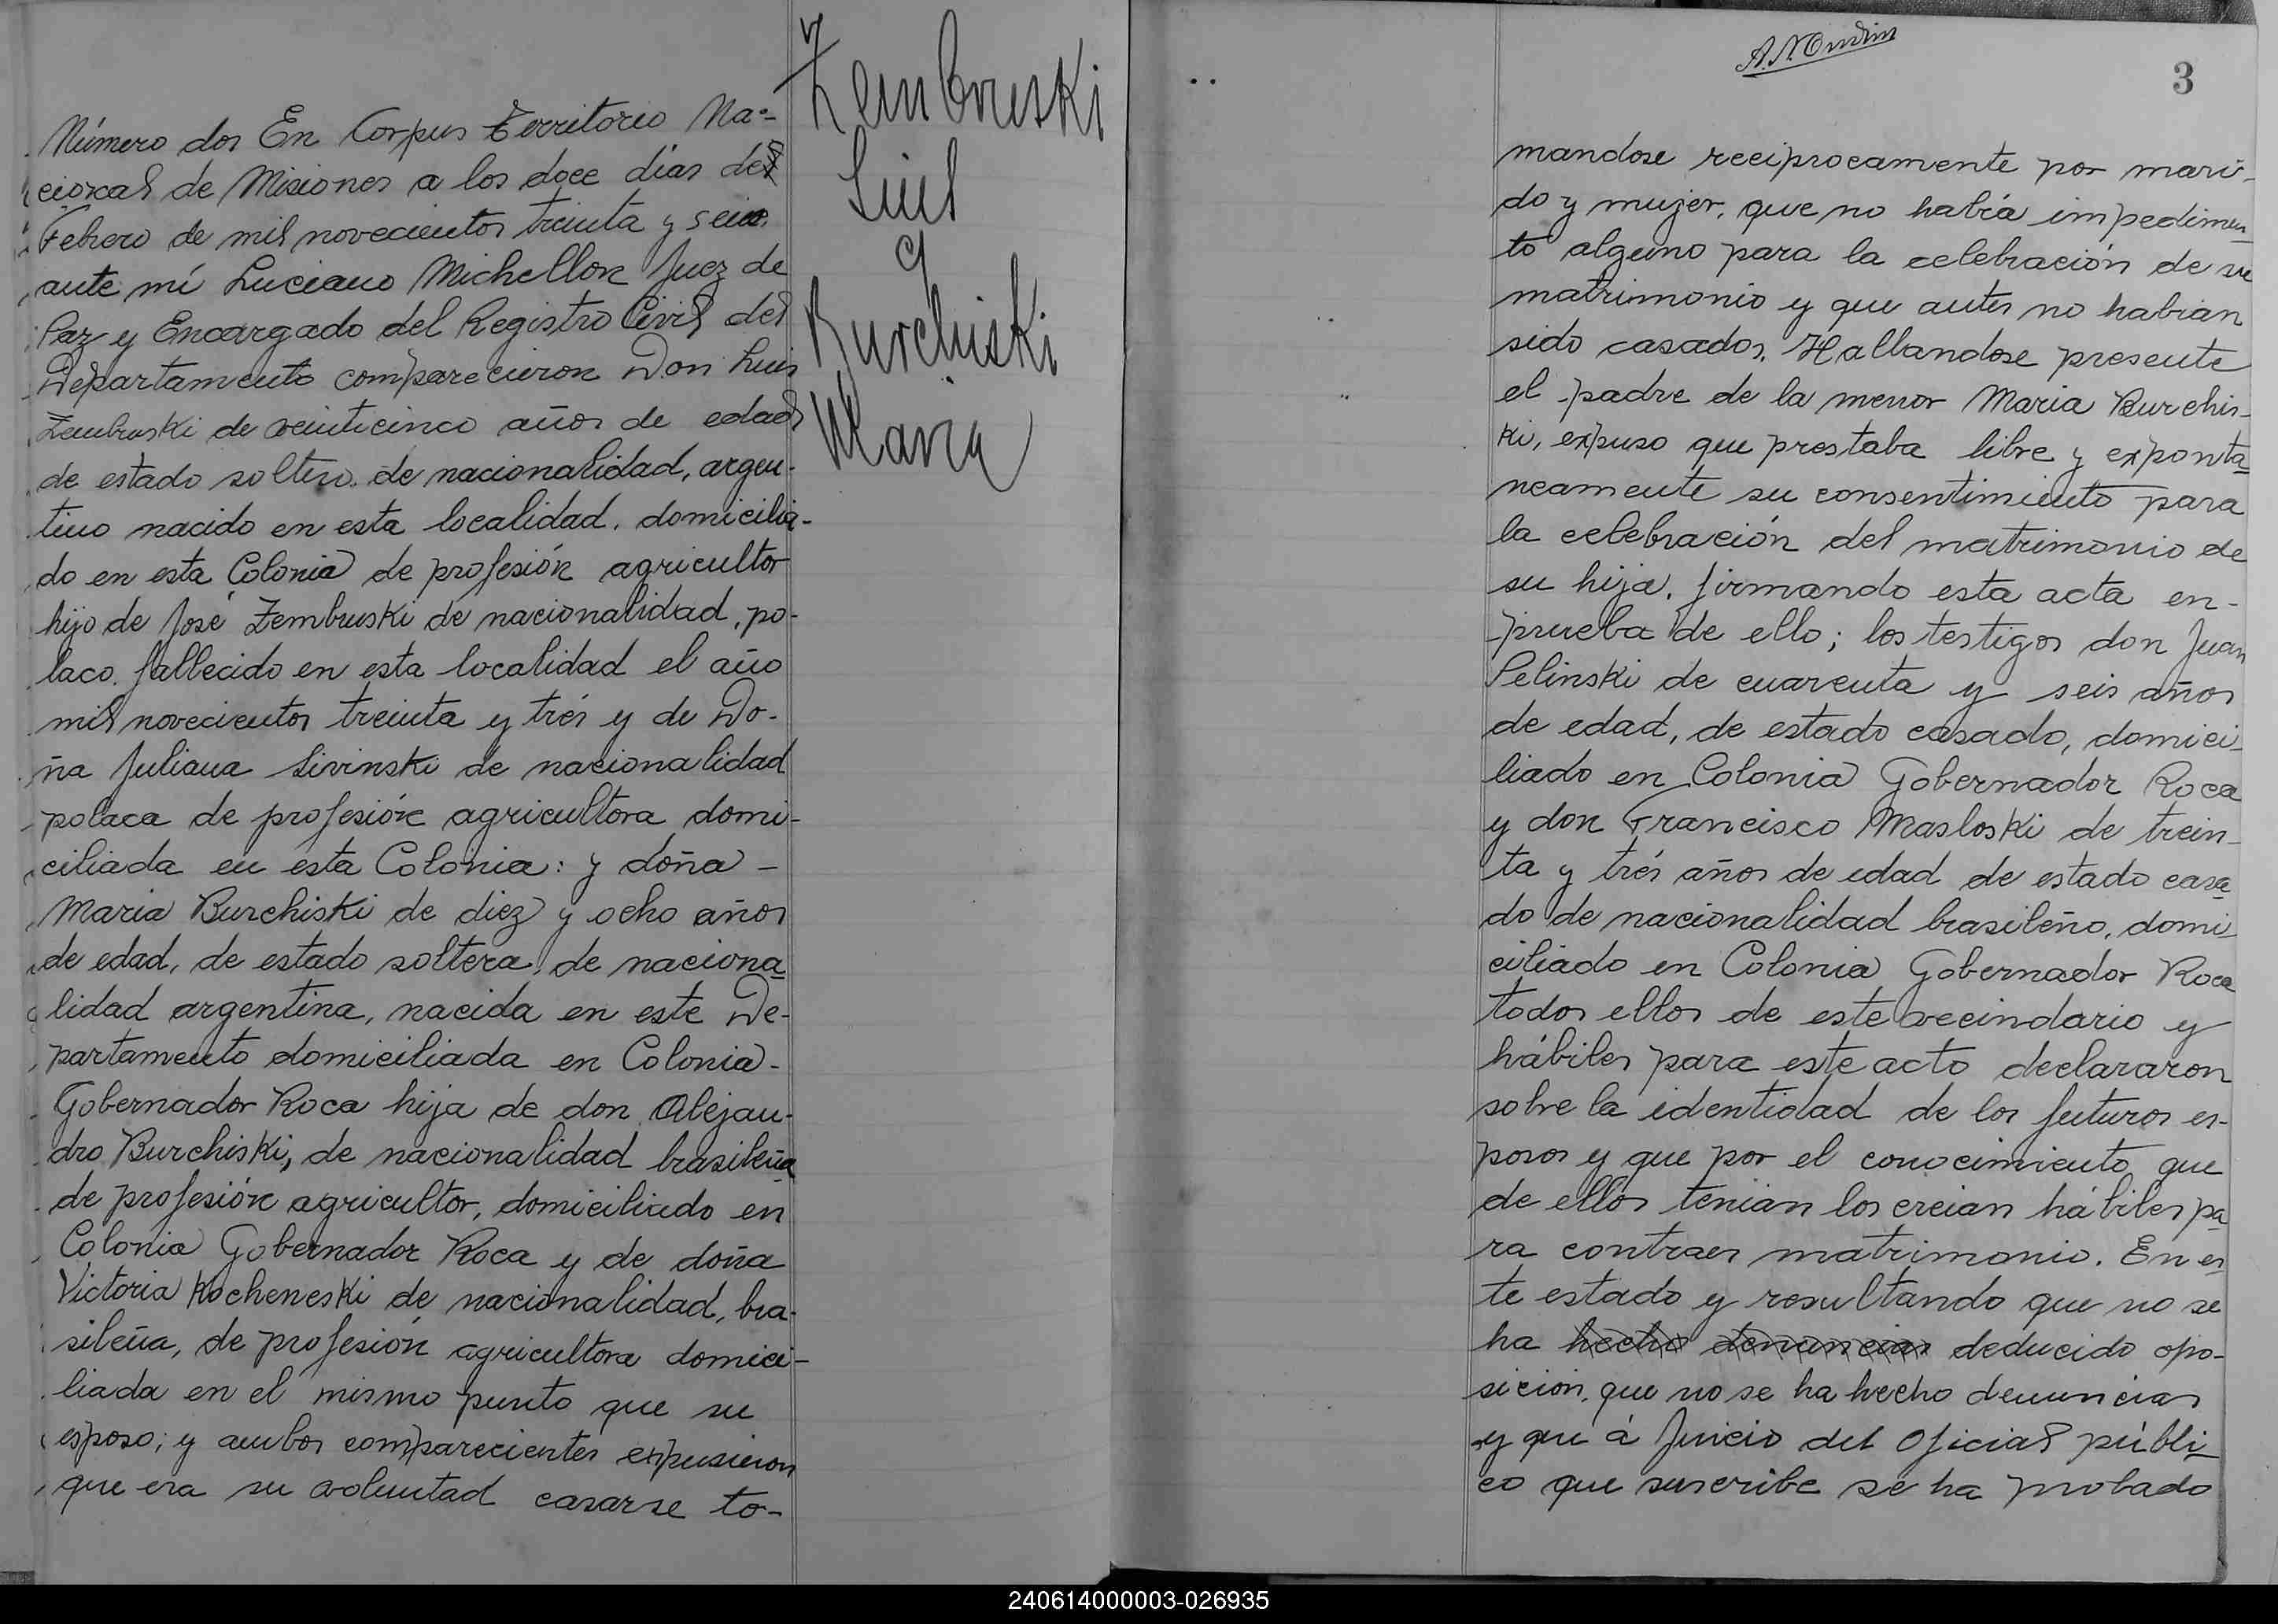 Número dos En Corpus Territorio Na-
cional de Misiones a los doce días de
Febrero de mil novecientos treinta y seis
ante mí Luciano Michellon Juez de
Paz y Encargado del Registro Civil del
Departamento comparecieron Don Luis
Zembruski de veinticinco años de edad
de estado soltero de nacionalidad, argen-
tino nacido en esta localidad, domicilia-
do en esta Colonia de profesión agricultor
hijo de José Zembruski de nacionalidad, po-
laco. fallecido en esta localidad el año
mil novecientos treinta y trés y de Do-
ña Juliana Sivinski de nacionalidad
polaca de profesión agricultora domi-
ciliada en esta Colonia: y doña -
Maria Burchiski de diez y ocho años
de edad, de estado soltera, de naciona
lidad argentina, nacida en este De-
partamento domiciliada en Colonia -
Gobernador Roca hija de don Alejan-
dro Burchiski, de nacionalidad brasileña
de profesión agricultor, domiciliado en
Colonia Gobernador Roca y de doña
Victoria Kocheneski de nacionalidad, bra-
sileña, de profesión agricultora domici-
liada en el mismo punto que su
esposo; y ambos comparecientes expusieron
que era su voluntad casarse to-
Zembruski
Luis
y
Burchiski
Maria
3
mandose reciprocamente por mari-
do y mujer, que no había impedimen-
to alguno para la celebración de su
matrimonio y que antes no habian
sido casados. Hallandose presente
el padre de la menor Maria Burchis-
ki, expuso que prestaba libre y exponta
neamente su consentimiento para
la celebración del matrimonio de
su hija, firmando esta acta en-
prueba de ello; los testigos don Juan
Pelinski de cuarenta y seis años
de edad, de estado casado, domici
liado en Colonia Gobernador Roca
y don Francisco Masloski de trein-
ta y trés años de edad de estado casa
do de nacionalidad brasileño, domi
ciliado en Colonia Gobernador Roca
todos ellos de este vecindario y
hábiles para este acto declararon
sobre la identidad de los futuros es-
posos y que por el conocimiento que
de ellos tenian los creian hábiles pa
ra contraer matrimonio. En es
te estado y resultando que no se
ha hecho denuncias deducido opo-
sición, que no se ha hecho denuncias
y que á Juicio del Oficial públi
co que suscribe se ha probado
240614000003-026935